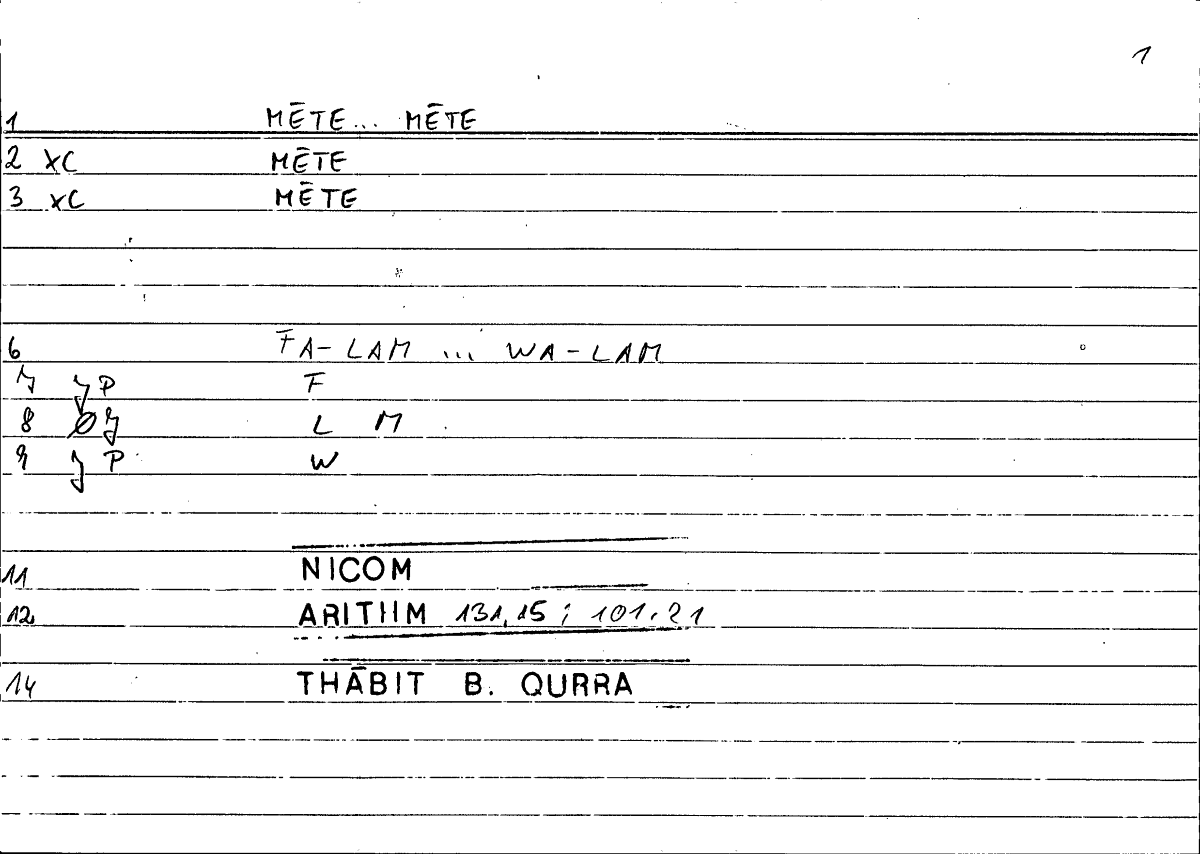 1
1 MĒTE... MĒTE
2 XC MĒTE
3 XC MĒTE
6 FA-LAM ... WA-LAM
7 JP F
8 ØJ L M
9 JP W
11 NICOM
12 ARITHM 131,15; 101,21
14 THĀBIT B. QURRA